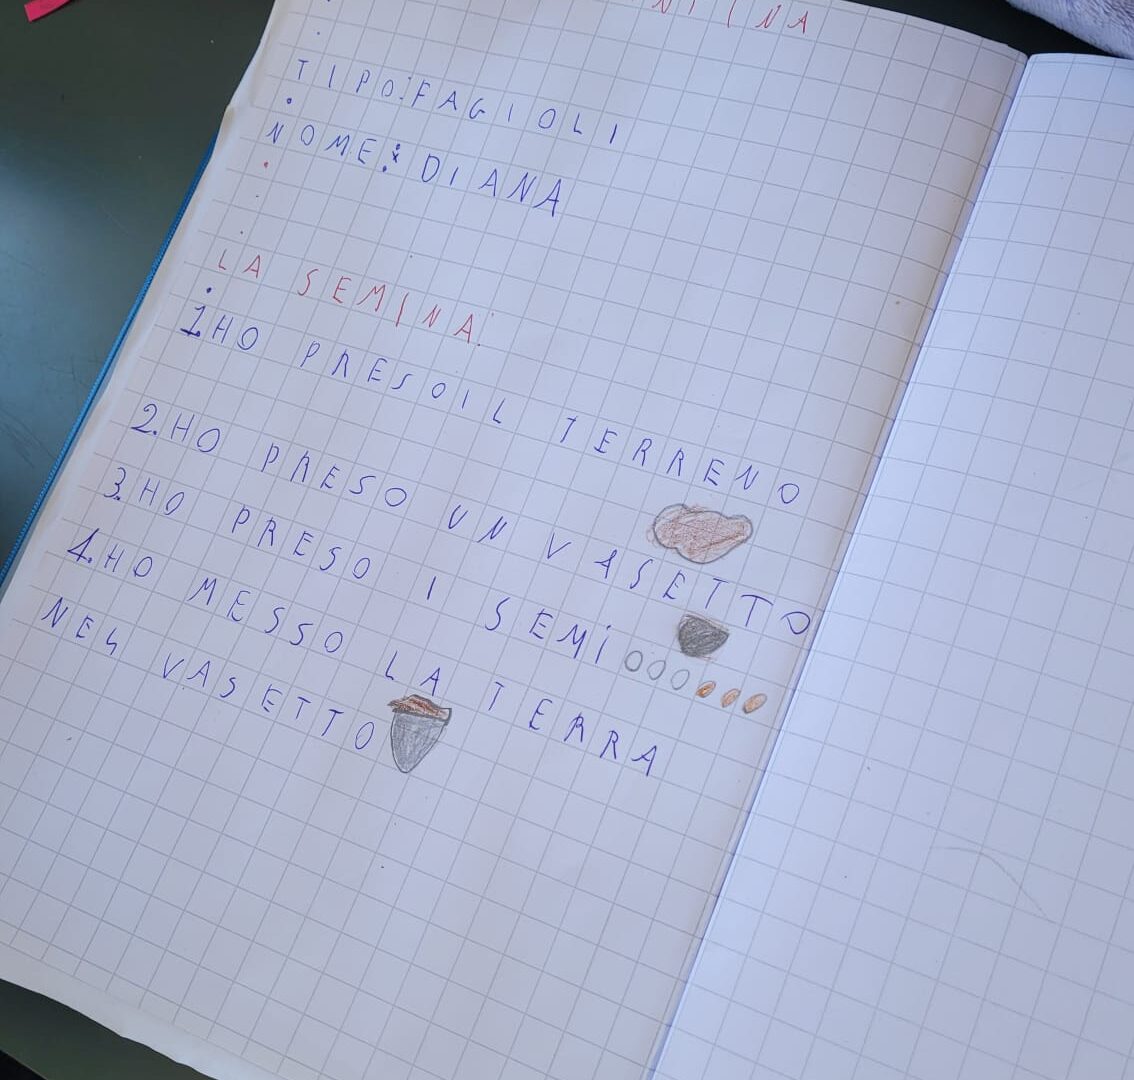 TIPO:FAGIOLI
NOME: DIANA
LA SEMINA:
1. HO PRESO IL TERRENO
2. HO PRESO UN VASETTO
3. HO PRESO I SEMI
4. HO MESSO LA TERRA
NEL VASETTO